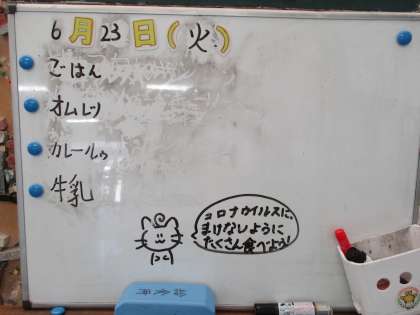 6月23日(火)
ごはん
オムレツ
カレールゥ
牛乳
コロナウイルスに、
まけなしように
たくさん食べよう!